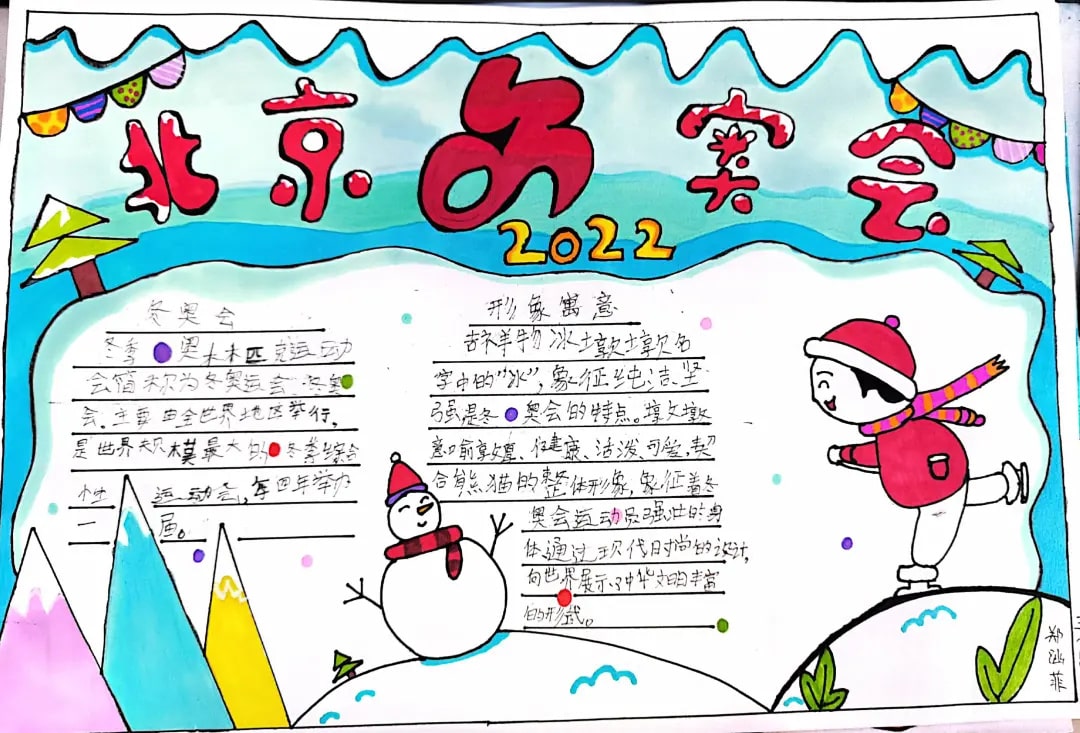 北京冬奥会
2022
冬奥会
冬季奥林匹克运动
会简称为冬奥运会.冬奥
会.主要由全世界地区举行,
是世界规模最大的冬季综合
性运动会,每四年举办
一届。
形象寓意
吉祥物冰墩墩名
字中的"冰",象征纯洁.坚
强是冬奥会的特点。墩墩
意喻敦厚、健康、活泼.可爱.契
合熊猫的整体形象,象征着冬
奥会运动员强壮的身
体通过现代时尚的设计,
向世界展示了中华文明的丰富
的形式。
郑汕菲